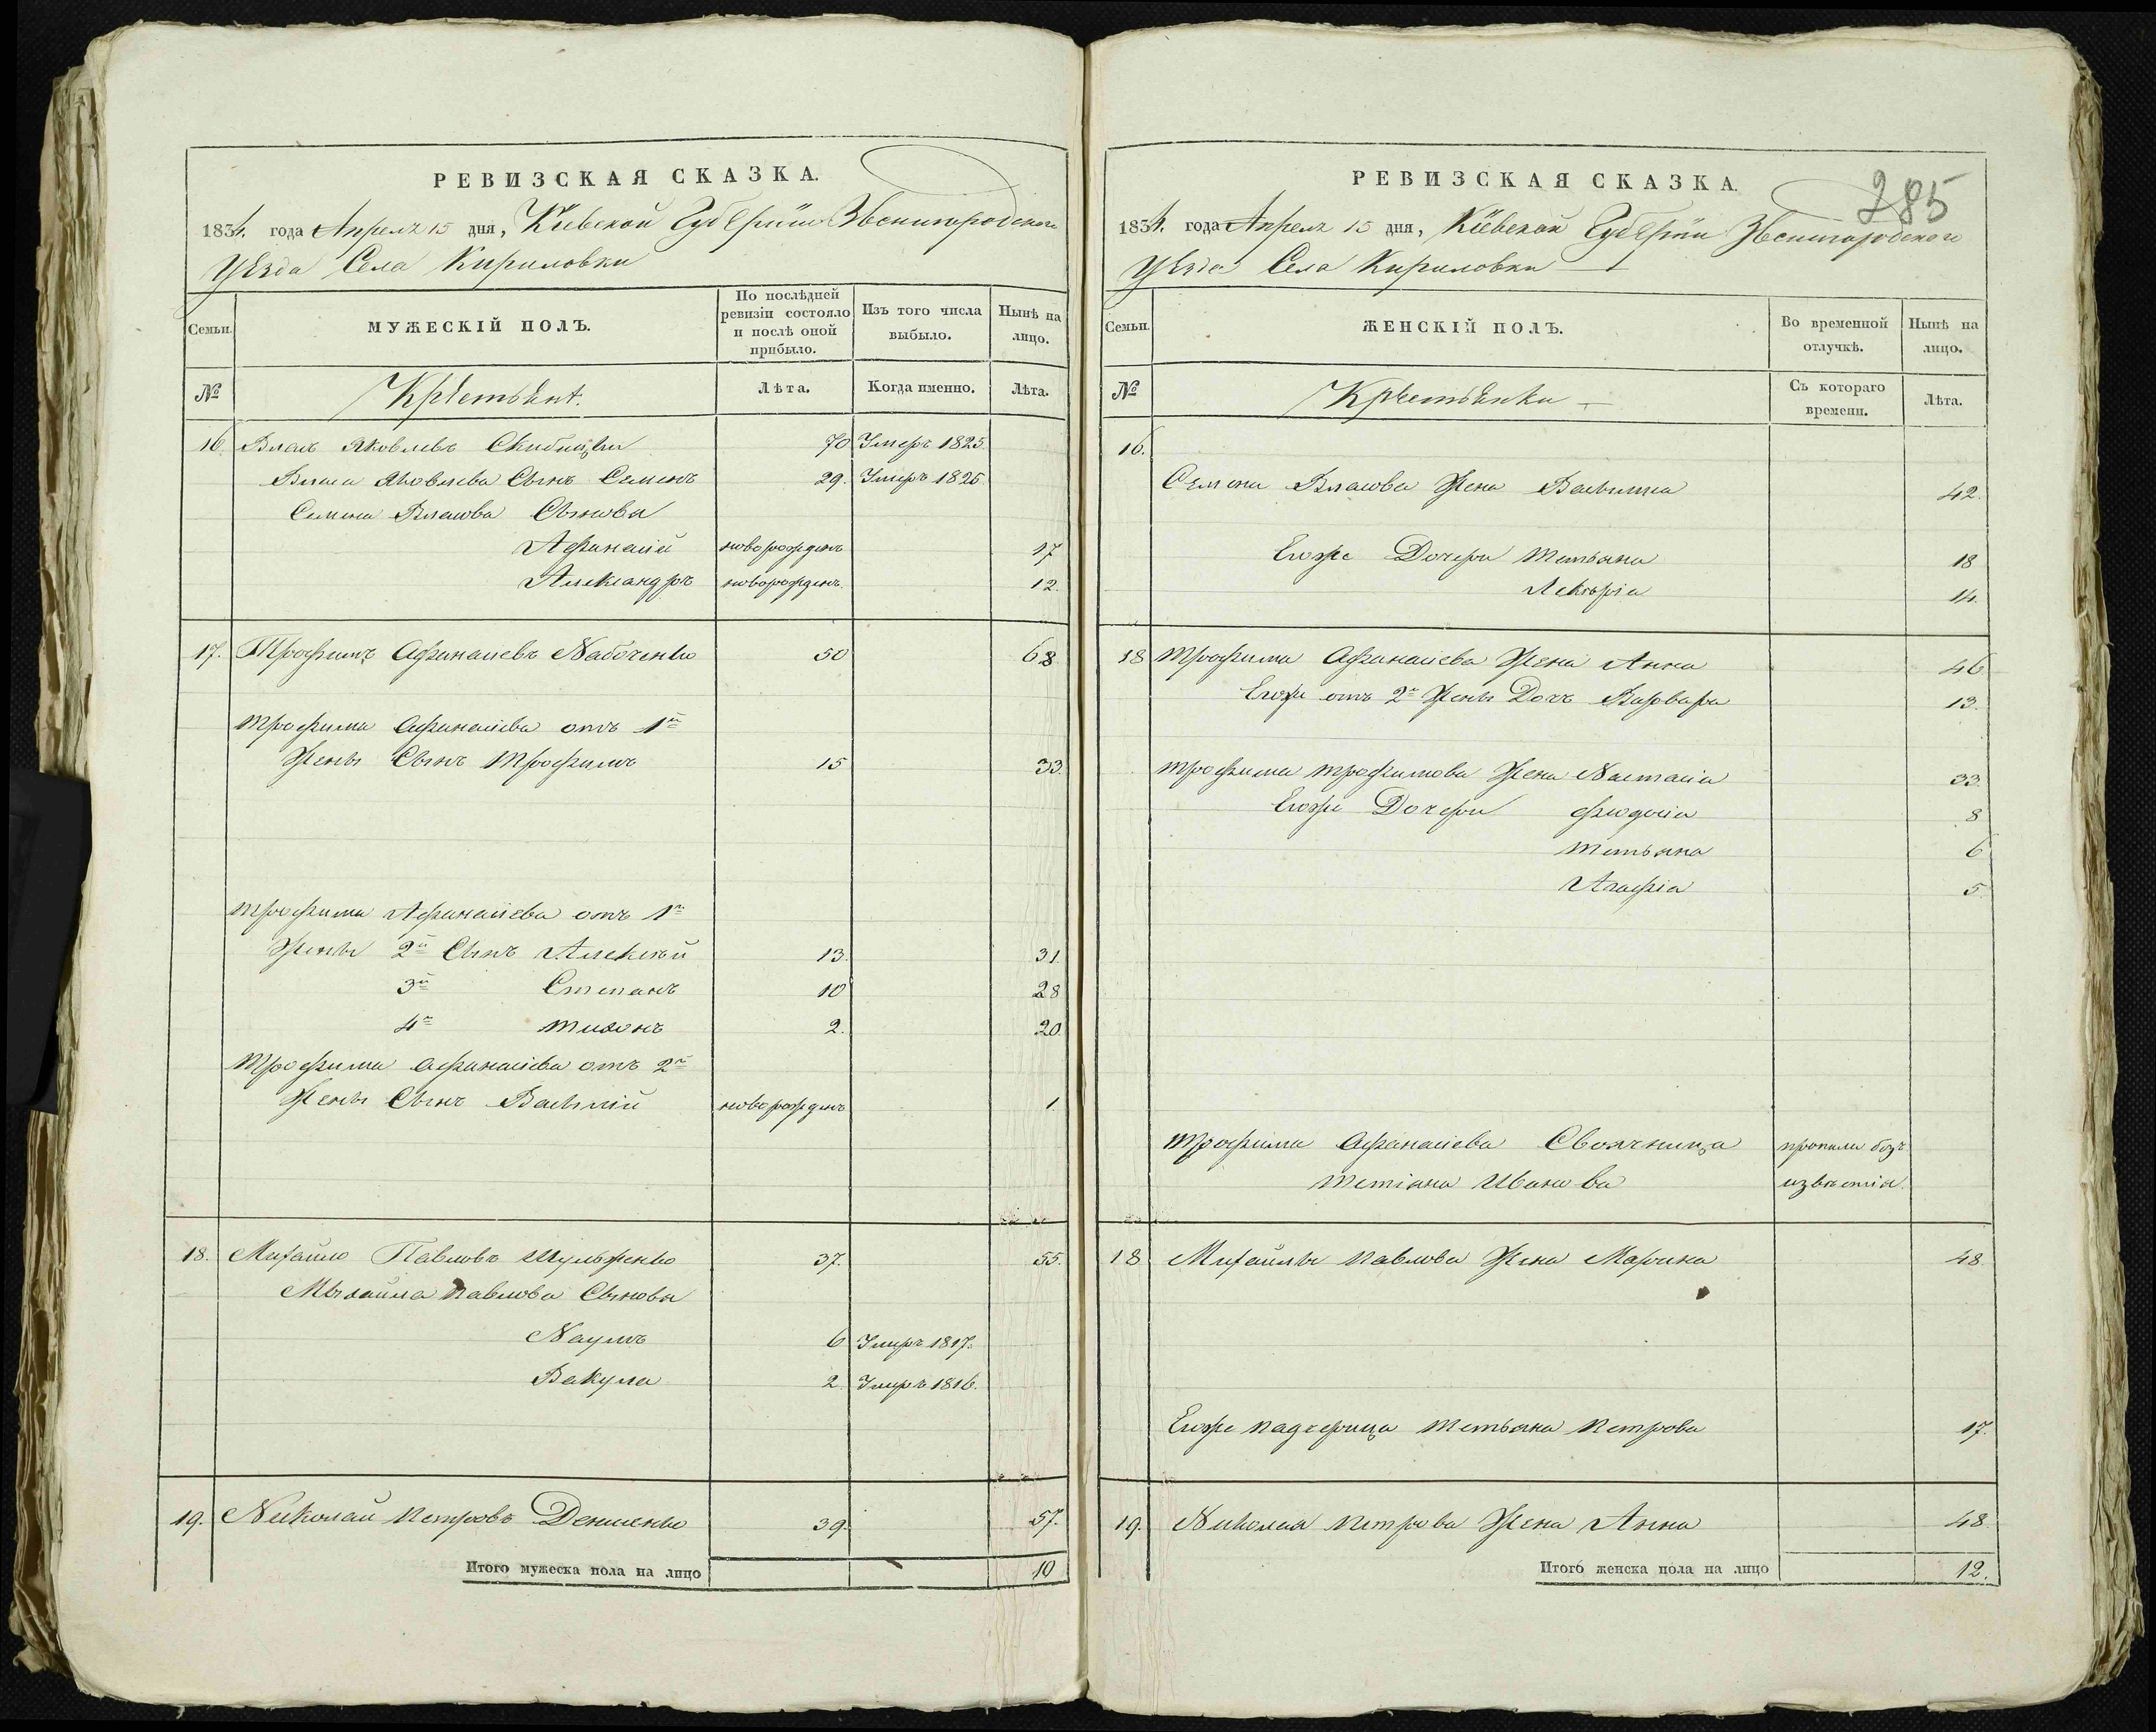 РЕВИЗСКАЯ СКАЗКА.
1834. года Апреля 15 дня, Кіевской Губерніи Звенигородского
Уезда Села Кириловки
Семьи.
МУЖЕСКІЙ ПОЛЪ.
По послѣдней ревизіи состояло и послѣ оной прибыло.
Изъ того числа выбыло.
Нынѣ на лицо.
№
Крестьяне.
Лѣта.
Когда именно.
Лѣта.
16. Власъ Яковлевъ 70 Умеръ 1825.
Власа Яковлева Сынъ Семенъ 29. Умеръ 1825.
Семена Власова Сыновья
Афанасій новорожденъ 17
Александръ новорожденъ. 12.
17. Трофимъ Афанасіевъ Набоченко 50 68
Трофима Афанасіева отъ 1й
Жены Сынъ Трофимъ 15 33.
Трофима Афанасіева отъ 1й
Жены 2й Сынъ Алексѣй 13. 31.
3й Степанъ 10 28
4й Тихонъ 2. 20.
Трофима Афанасіева отъ 2й
Жены Сынъ Василій новорожденъ 1.
18. Михайло Павловъ Шульженко 37. 55.
Михайла Павлова Сыновья
Наумъ 6 Умеръ 1817.
Вакула 2. Умеръ 1816.
19. Николай Петровъ Денисенко 39. 57.
Итого мужеска пола на лицо 10
285
РЕВИЗСКАЯ СКАЗКА.
1834. года Апреля 15 дня, Кіевской Губерніи Звенигородского
Уезда Села Кириловки
Семьи.
ЖЕНСКІЙ ПОЛЪ.
Во временной отлучкѣ.
Нынѣ на лицо.
№
Крестьянки
Съ котораго времени.
Лѣта.
16.
Семена Власова Жена Васылина 42.
Егоже Дочери Татьяна 18
14.
18 Трофима Афанасіева Жена Анна 46
Егоже отъ 2й Жены Дочь Варвара 13.
Трофима Трофимова Жена Настасіа 33.
Егоже Дочери Феодосіа 8
Татьяна 6
Агафіа 5.
Трофима Афанасіева Своячница пропала безъ
Татіана Иванова извѣстія.
18 Михайлы Павлова Жена Марина 48.
Егоже падчерица Татьяна Петрова 17.
19. Николая Петрова Жена Анна 48.
Итого женска пола на лицо 12.